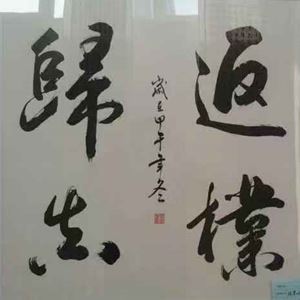 返樸
歸真
歲在甲午年冬